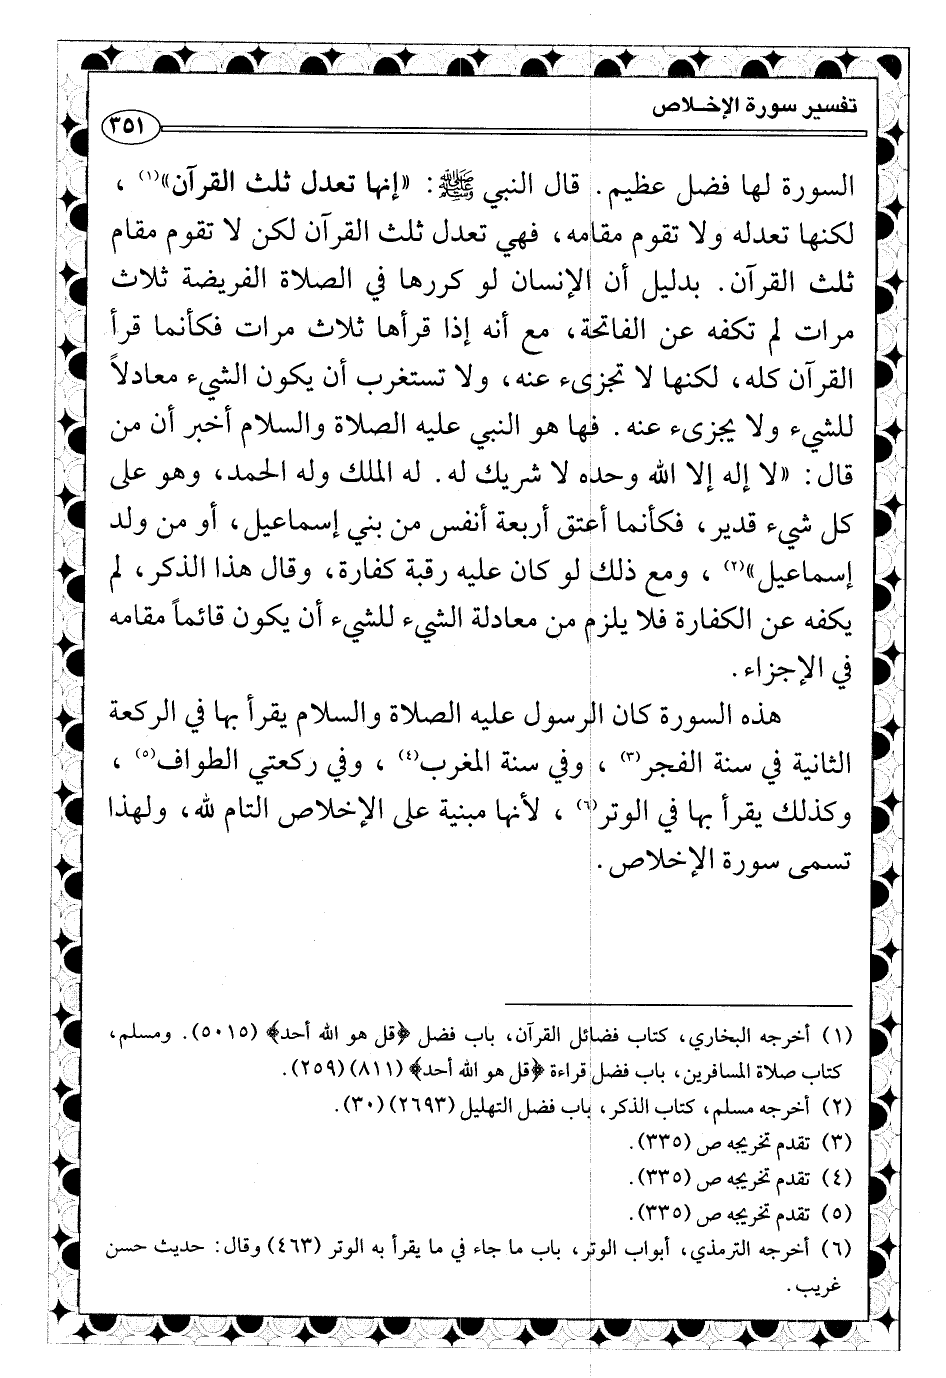 تفسير سورة الإخلاص
٣٥١
السورة لها فضل عظيم. قال النبي ﷺ: «إنها تعدل ثلث القرآن»(١)،
لكنها تعدله ولا تقوم مقامه، فهي تعدل ثلث القرآن لكن لا تقوم مقام
ثلث القرآن. بدليل أن الإنسان لو كررها في الصلاة الفريضة ثلاث
مرات لم تكفه عن الفاتحة، مع أنه إذا قرأها ثلاث مرات فكأنما قرأ
القرآن كله، لكنها لا تجزىء عنه، ولا تستغرب أن يكون الشيء معادلاً
للشيء ولا يجزىء عنه. فها هو النبي عليه الصلاة والسلام أخبر أن من
قال: «لا إله إلا الله وحده لا شريك له. له الملك وله الحمد، وهو على
كل شيء قدير، فكأنما أعتق أربعة أنفس من بني إسماعيل، أو من ولد
إسماعيل»(٢)، ومع ذلك لو كان عليه رقبة كفارة، وقال هذا الذكر، لم
يكفه عن الكفارة فلا يلزم من معادلة الشيء للشيء أن يكون قائماً مقامه
في الإجزاء.
هذه السورة كان الرسول عليه الصلاة والسلام يقرأ بها في الركعة
الثانية في سنة الفجر(٣)، وفي سنة المغرب(٤)، وفي ركعتي الطواف(٥)،
وكذلك يقرأ بها في الوتر(٦)، لأنها مبنية على الإخلاص التام لله، ولهذا
تسمى سورة الإخلاص.
(١) أخرجه البخاري، كتاب فضائل القرآن، باب فضل ﴿قل هو الله أحد﴾ (٥٠١٥). ومسلم،
كتاب صلاة المسافرين، باب فضل قراءة ﴿قل هو الله أحد﴾ (٨١١) (٢٥٩).
(٢) أخرجه مسلم، كتاب الذكر، باب فضل التهليل (٢٦٩٣) (٣٠).
(٣) تقدم تخريجه ص (٣٣٥).
(٤) تقدم تخريجه ص (٣٣٥).
(٥) تقدم تخريجه ص (٣٣٥).
(٦) أخرجه الترمذي، أبواب الوتر، باب ما جاء في ما يقرأ به الوتر (٤٦٣) وقال: حديث حسن
غريب.